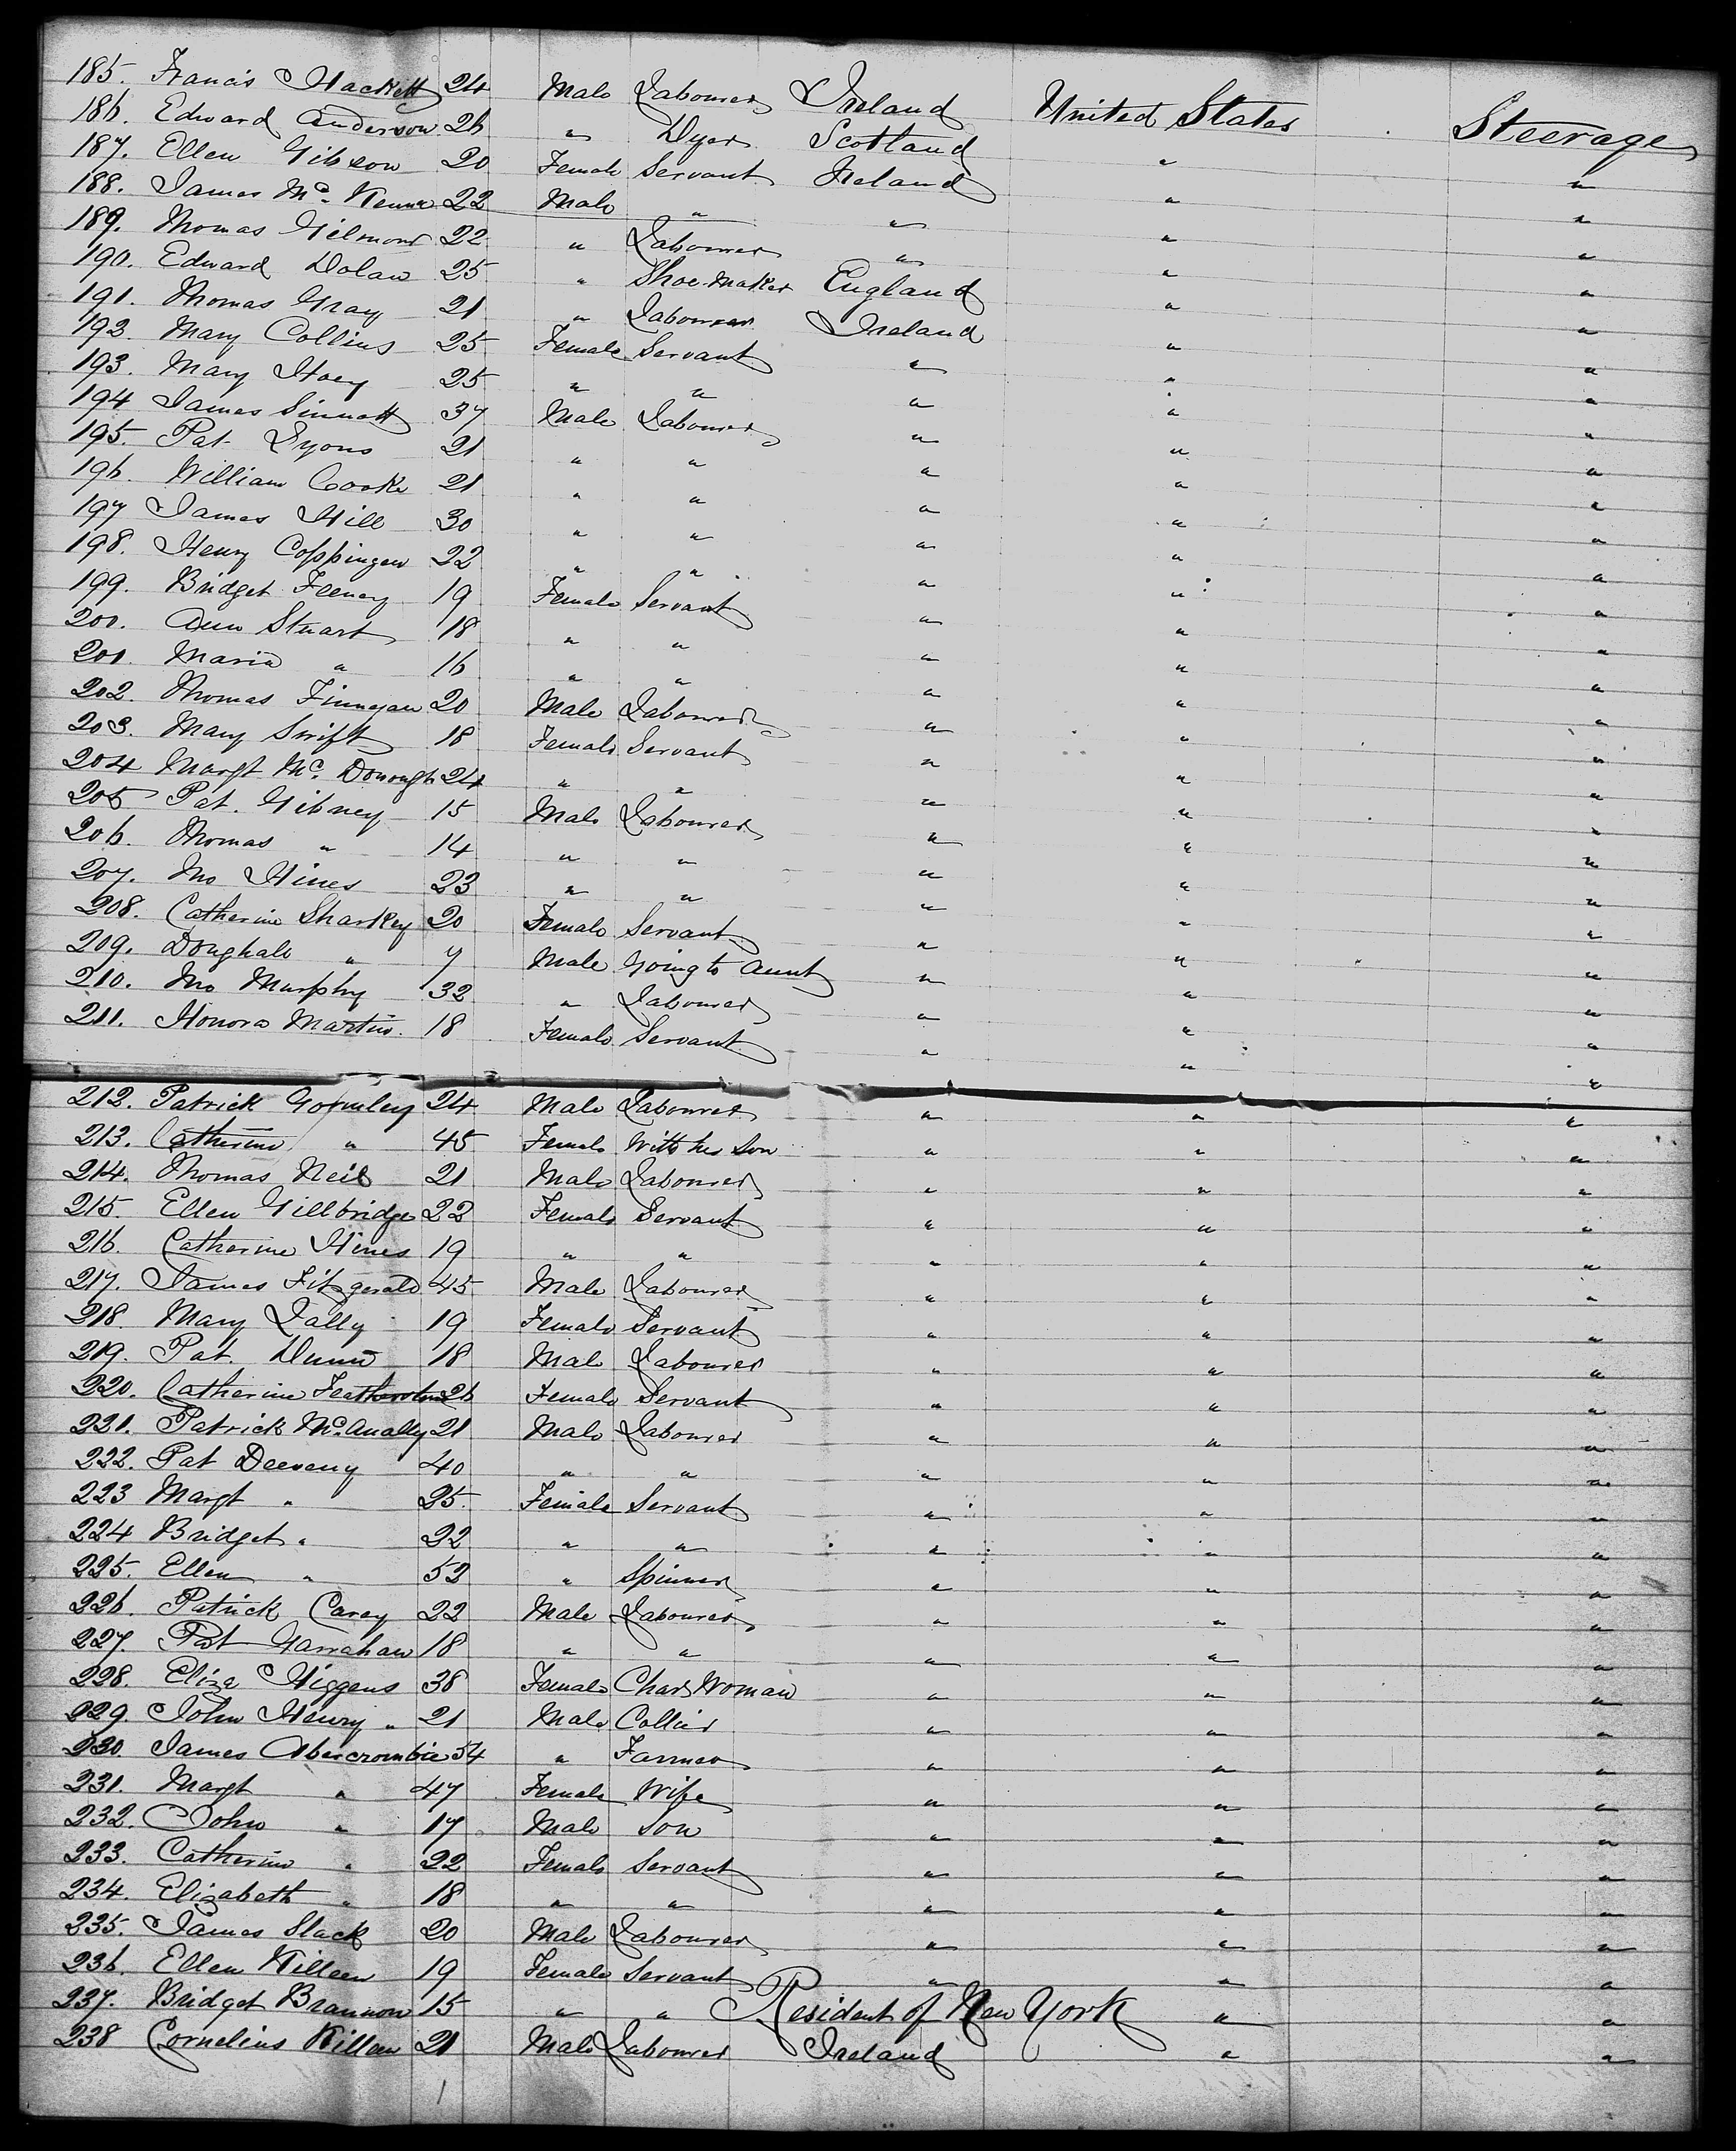 185. Francis Hackett 24 Male Labourer Ireland United States Steerage
186. Edward Anderson 26 " Dyer Scotland " "
187. Ellen Gibson 20 Female Servant Ireland " "
188. James Mc. Kenna 22 Male " " " "
189. Thomas Gilmour 22 " Labourer " " "
190. Edward Dolan 25 " Shoe Maker England " "
191. Thomas Gray 21 " Labourer Ireland " "
192. Mary Collins 25 Female Servant " " "
193. Mary Hoey 25 " " " " "
194 James Sinnott 37 Male Labourer " " "
195. Pat Lyons 21 " " " " "
196. William Cooke 21 " " " " "
197 James Hill 30 " " " " "
198. Henry Coppinger 22 " " " " "
199. Bridget Feeney 19 Female Servant " " "
200. Ann Stuart 18 " " " " "
201. Maria " 16 " " " " "
202. Thomas Finnegan 20 Male Labourer " " "
203. Mary Swift 18 Female Servant " " "
204 Margt Mc. Donough 24 " " " " "
205 Pat. Gibney 15 Male Labourer " " "
206. Thomas " 14 " " " " "
207. Jno Hines 23 " " " " "
208. Catherine Sharkey 20 Female Servant " " "
209. Doughall " 7 Male Going to Aunt " " "
210. Jno Murphy 32 " Labourer " " "
211. Honora Martin. 18 Female Servant " " "
212. Patrick Gormley 24 Male Labourer " " "
213. Catherine " 45 Female With her Son " " "
214. Thomas Neil 21 Male Labourer " " "
215. Ellen Gillbridge 22 Female Servant " " "
216. Catherine Hines 19 " " " " "
217. James Fitzgerald 45 Male Labourer " " "
218. Mary Lally 19 Female Servant " " "
219. Pat. Dunn 18 Male Labourer " " "
220. Catherine Featherston 26 Female Servant " " "
221. Patrick Mc.Anally 21 Male Labourer " " "
222. Pat Deeveny 40 " " " " "
223 Margt " 25. Female Servant " " "
224 Bridget " 22 " " " " "
225. Ellen " 52 " Spinner " " "
226. Patrick Carey 22 Male Labourer " " "
227. Pat Garrahan 18 " " " " "
228. Eliza Higgens 38 Female Char Woman " " "
229. John Henry " 21 Male Collier " " "
230 James Abercrombie 54 " Farmer " " "
231. Margt " 47 Female Wife " " "
232. John " 17 Male Son " " "
233. Catherine " 22 Female Servant " " "
234. Elizabeth " 18 " " " " "
235. James Slack 20 Male Labourer " " "
236. Ellen Killeen 19 Female Servant " " "
237. Bridget Brannon 15 " " Resident of New York " "
238 Cornelius Killeen 21 Male Labourer Ireland " "